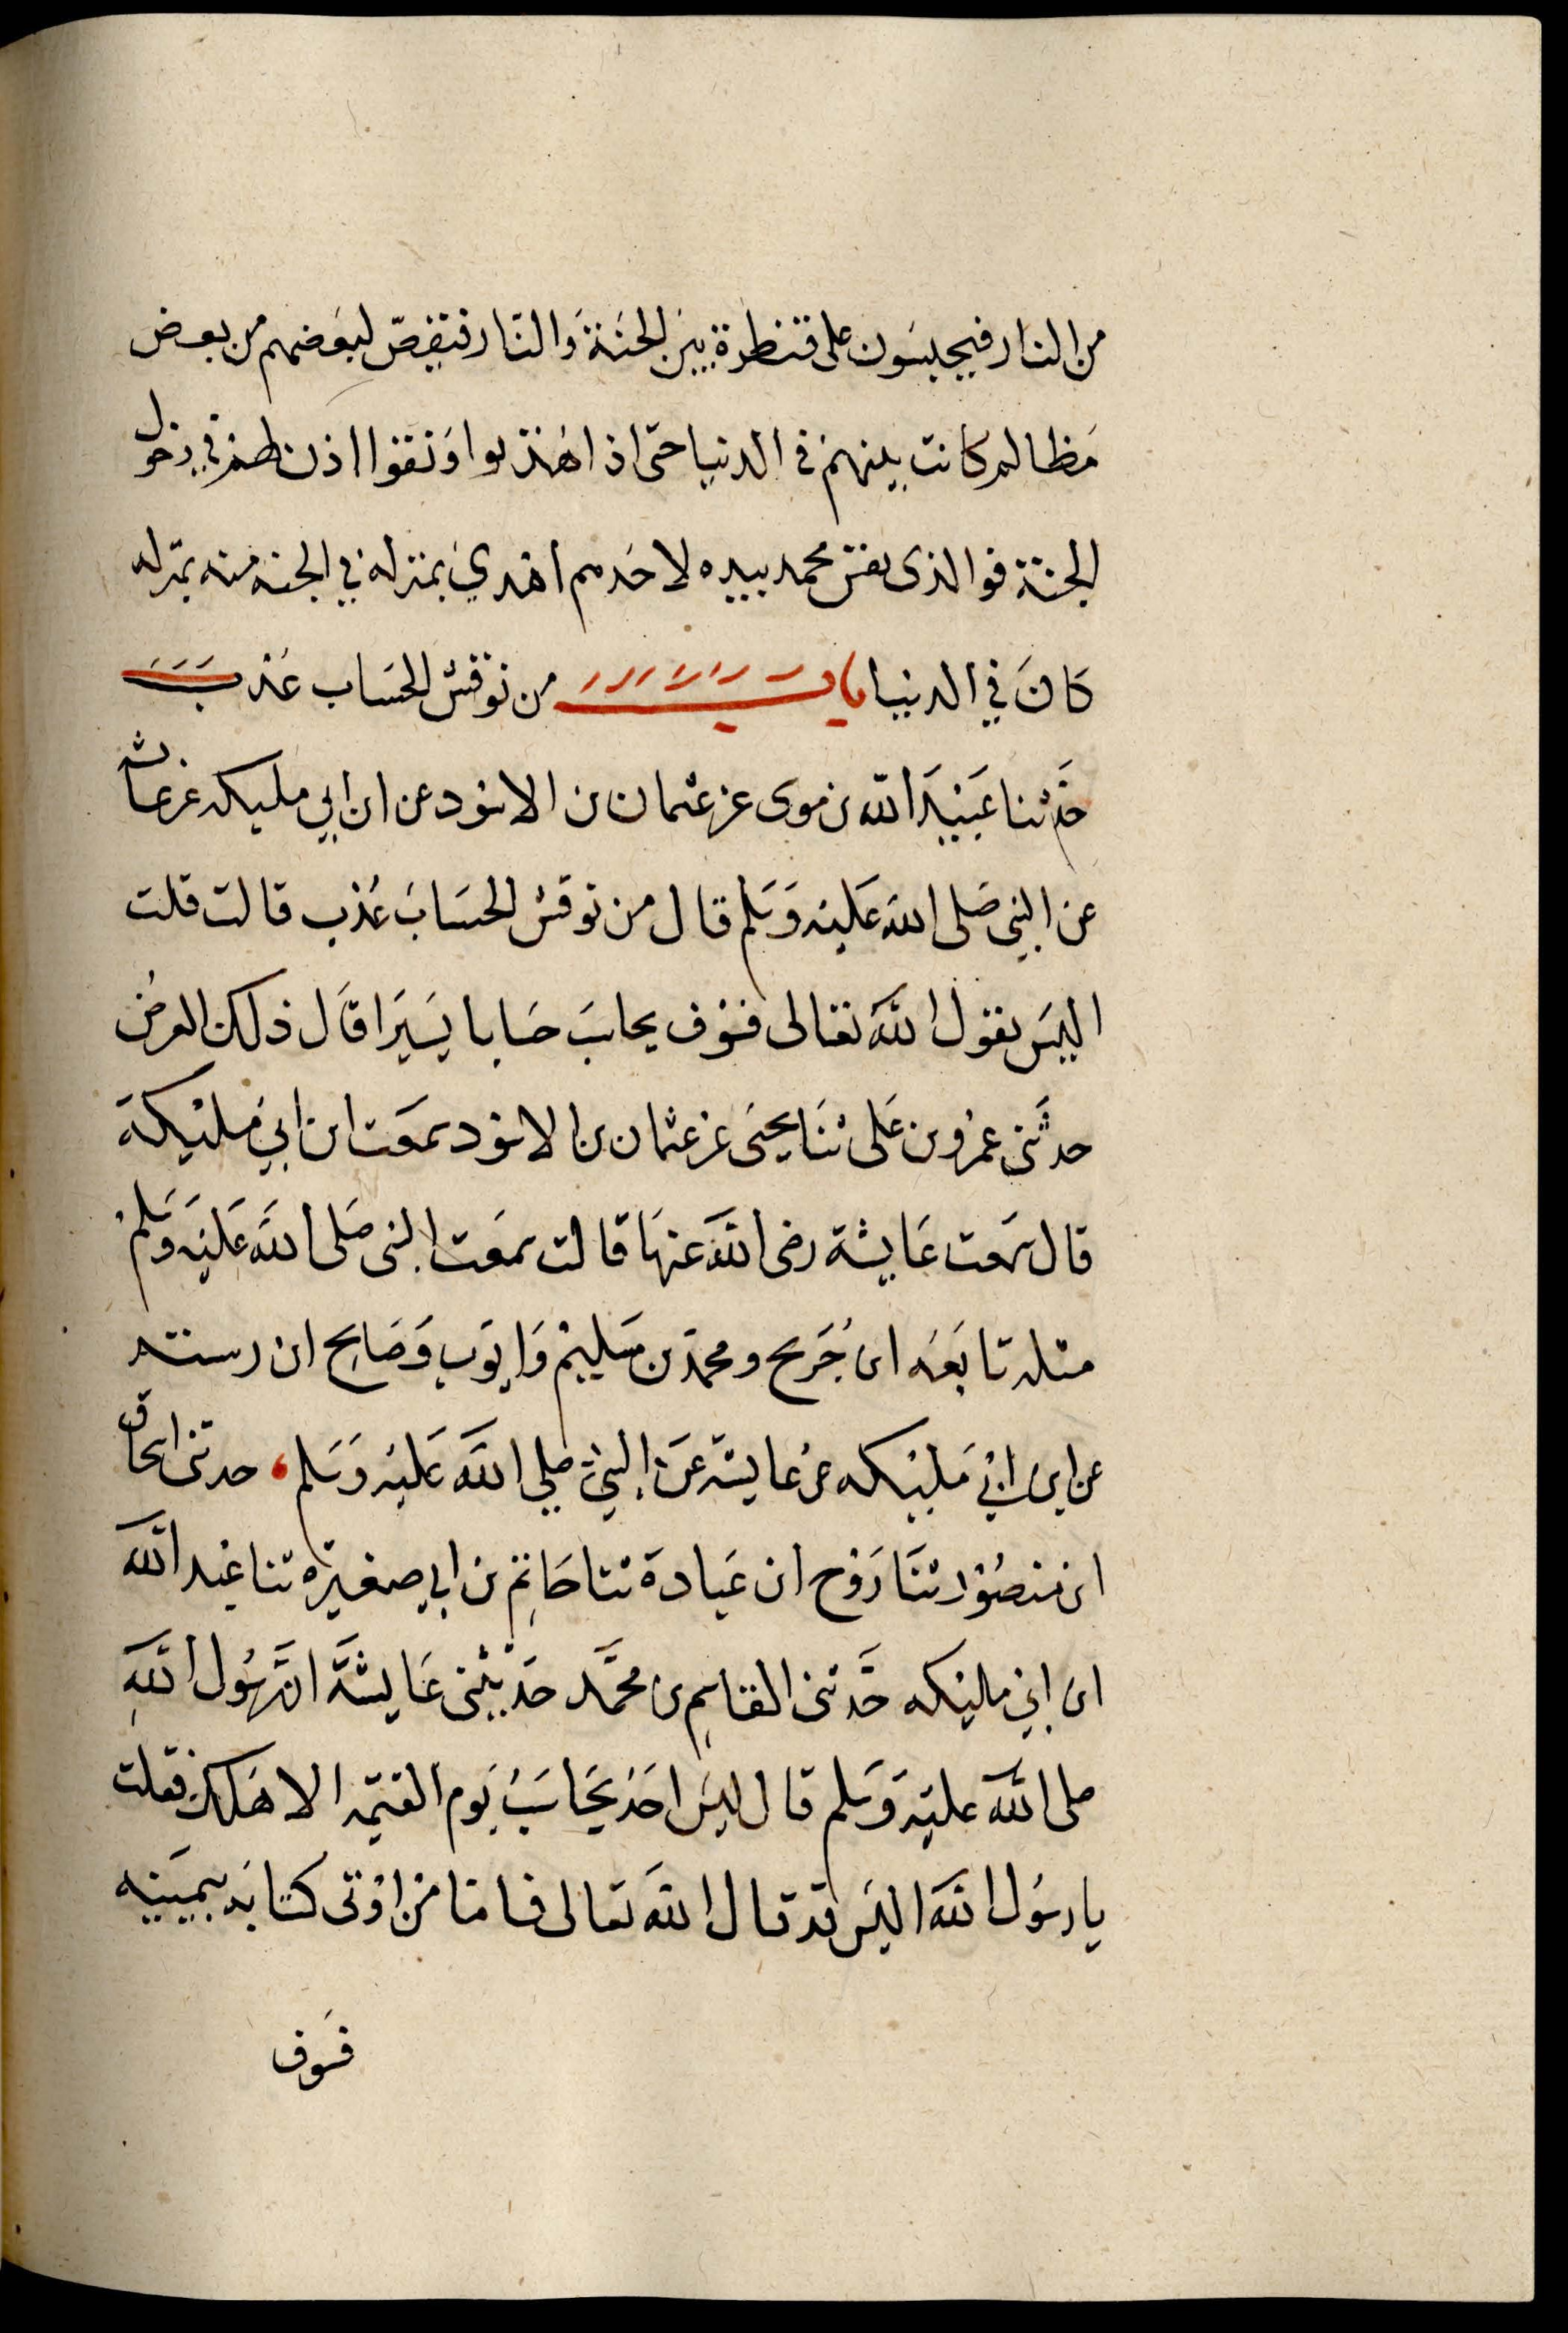 من النار فيحبسون على قنطرة بين الجنة والنار فيقصّ لبعضهم من بعض
مظالم كانت بينهم في الدنيا حتى اذا هذبوا ونقوا اذن لهم في دخول
الجنة فوالذى نفس محمد بيده لاحدهم اهدي بمنزله في الجنه منه بمنزله
كان في الدنيا باب من نوقش الحساب عذب
حدثنا عبيد الله بن موسى عن عثمان بن الاسود عن ابن ابي مليكه عن عائشه
عن النبي صلى الله عليه وسلم قال من نوقش الحساب عذب قالت قلت
اليس يقول الله تعالى فسوف يحاسب حسابا يسيرا قال ذلك العرض
حدثنى عمرو بن على ثنا يحيى عن عثمان بن الاسود سمعت ابن ابي مليكة
قال سمعت عايشة رضى الله عنها قالت سمعت النبى صلى الله عليه وسلم
مثله تابعه ابن جريح ومحمد بن سليم وايوب وصالح ابن رستم
عن ابن ابي مليكه عن عايشه عن النبي صلي الله عليه وسلم، حدثنى اسحاق
ابن منصور ثنا روح ابن عبادة ثنا حاتم بن ابي صغيره ثنا عبد الله
ابن ابي مليكه حدثنى القاسم بن محمد حدثتنى عايشة ان رسول الله
صلى الله عليه وسلم قال ليس احد يحاسب يوم القيمه الا هلك فقلت
يا رسول الله اليس قد قال الله تعالى فاما من اوتى كتابه بيمينه
فسوف